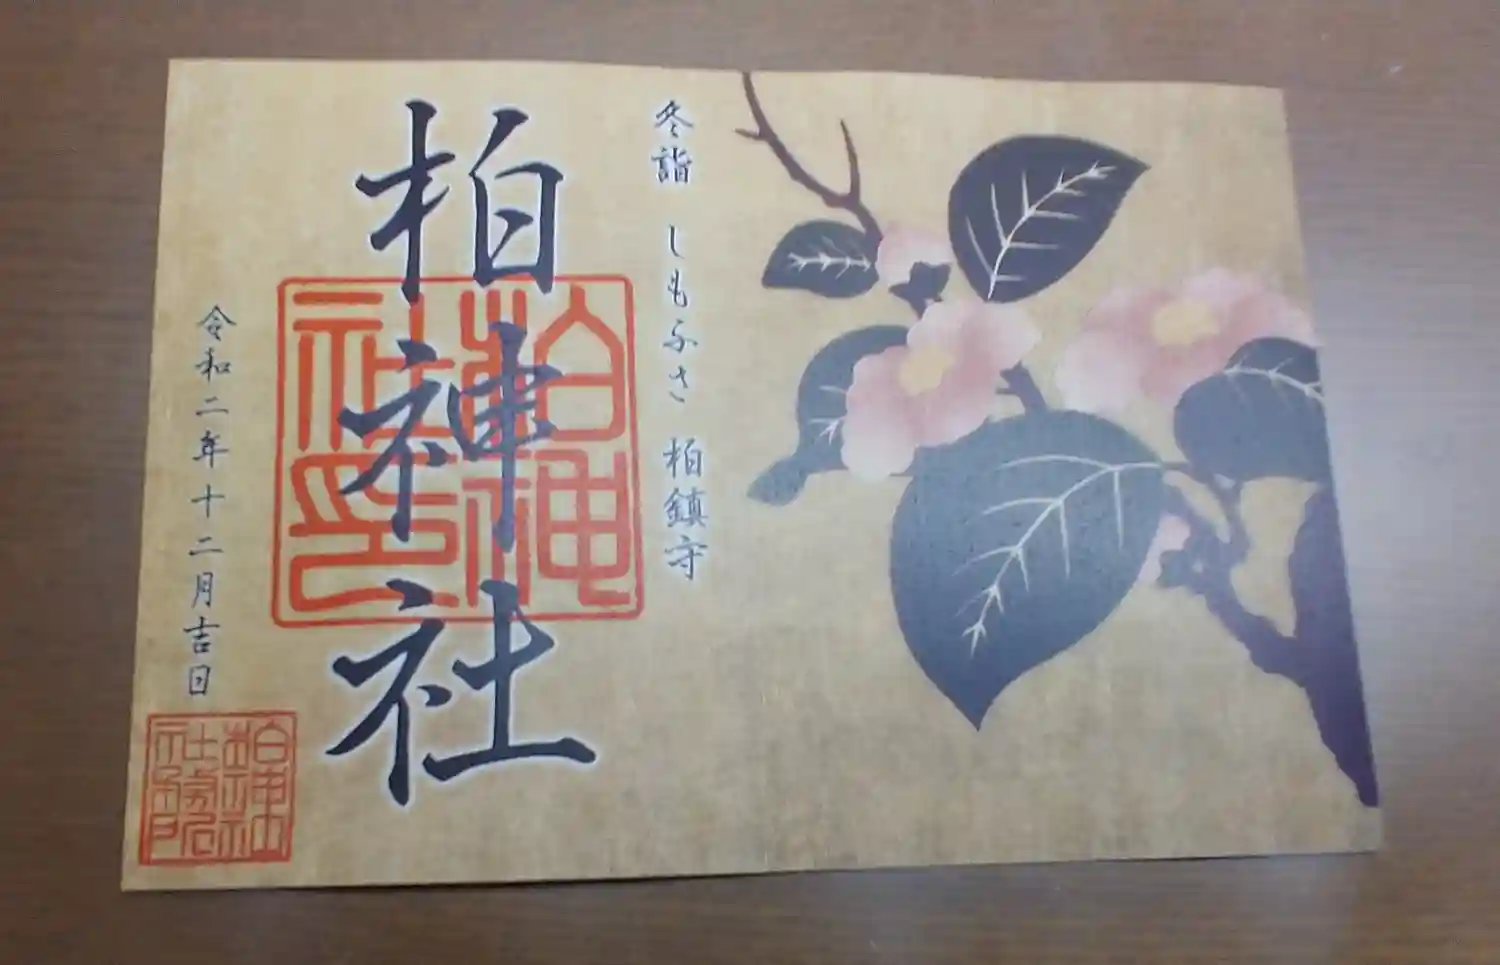 冬詣 しもふさ 柏鎮守
柏神社
柏神社印
令和二年十二月吉日
柏神社社務所